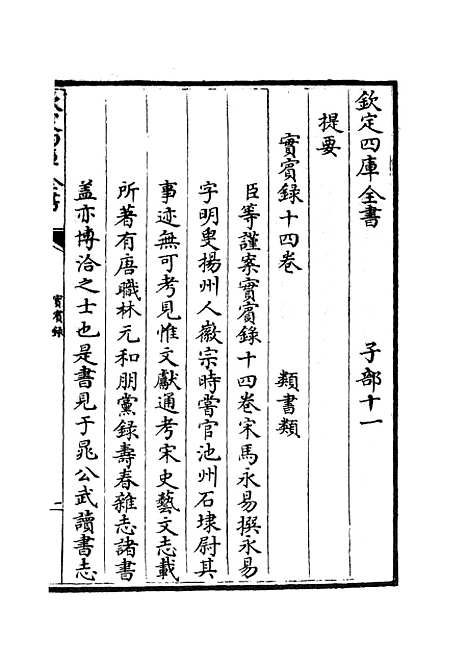 欽定四庫全書 子部十一
提要
實賓錄十四卷 類書類
臣等謹案實賓錄十四卷宋馬永易撰永易
字明叟揚州人徽宗時嘗官池州石埭尉其
事迹無可考見惟文獻通考宋史藝文志載
所著有唐職林元和朋黨錄壽春雜志諸書
盖亦博洽之士也是書見于晁公武讀書志
欽定四庫全書
實賓錄